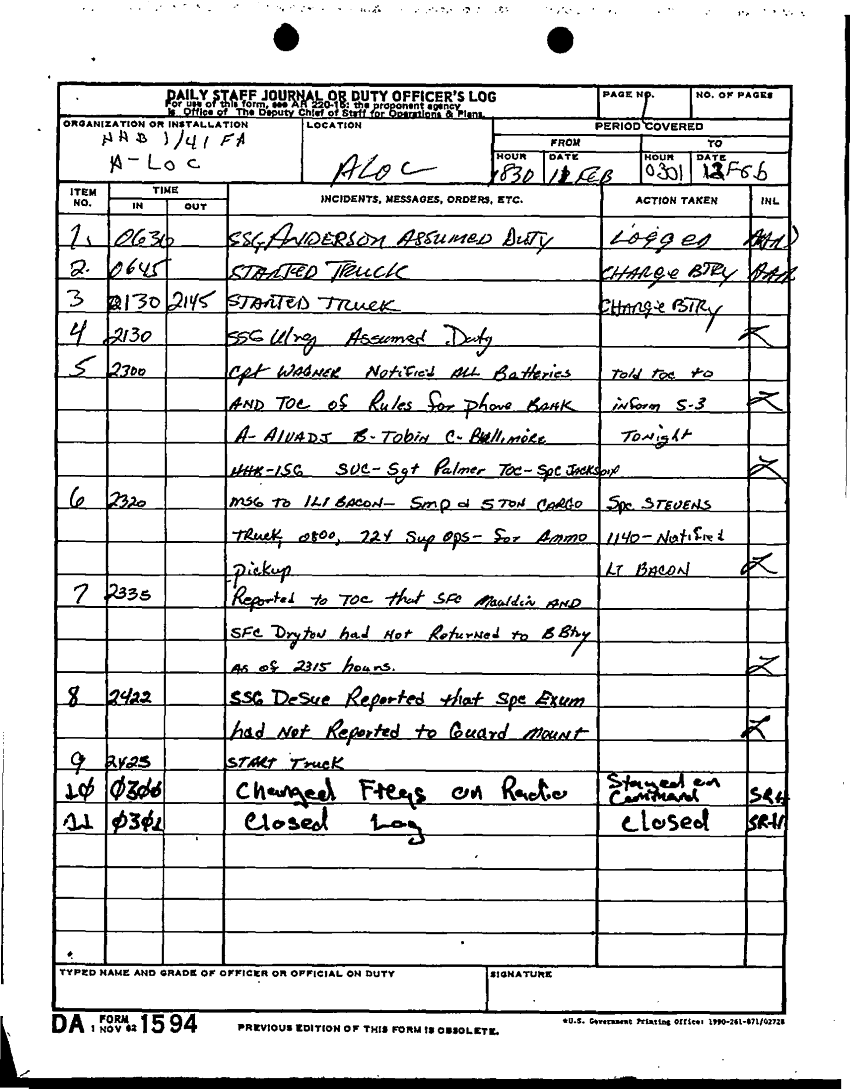 DAILY STAFF JOURNAL OR DUTY OFFICER'S LOG
For use of this form, see AR 220-15; the proponent agency
is Office of The Deputy Chief of Staff for Operations & Plans.
PAGE NO.
1
NO. OF PAGES
ORGANIZATION OR INSTALLATION
HHB 1/41 FA
A-LOC
LOCATION
ALOC
PERIOD COVERED
FROM
TO
HOUR
1830
DATE
12 FEB
HOUR
0301
DATE
13 Feb
ITEM NO.
TIME
IN
OUT
INCIDENTS, MESSAGES, ORDERS, ETC.
ACTION TAKEN
INL
1. 0630 SSG ANDERSON ASSUMED DUTY Logged
2. 0645 STARTED TRUCK CHARGE BTRY
3 2130 2145 STARTED TRUCK CHARGE BTRY
4 2130 SSG Assumed Duty
5 2300 Cpt WAGNER Notified ALL Batteries Told TOC to
AND TOC of Rules for phone BANK inform S-3
A- B-Tobin C- Tonight
SVC-Sgt Palmer TOC-Spc JACKSON
6 2320 MSG to 1LT BACON- 5 TON CARGO Spc STEVENS
Truck, 0800, 724 Sup Ops- for Ammo 1140-Notified
pickup LT BACON
7 2335 Reported to TOC that SFC Mauldin AND
SFC Dryton had Not Returned to B Btry
As of 2315 hours.
8 2422 SSG DeSue Reported that Spc Exum
had Not Reported to Guard MOUNT
9 2425 START Truck
10 0300 Changed Freqs on Radio Stayed on Command SRH
11 0301 Closed Log Closed SRH
TYPED NAME AND GRADE OF OFFICER OR OFFICIAL ON DUTY
SIGNATURE
DA FORM 1 NOV 62 1594
PREVIOUS EDITION OF THIS FORM IS OBSOLETE.
*U.S. Government Printing Office: 1990-261-871/02728